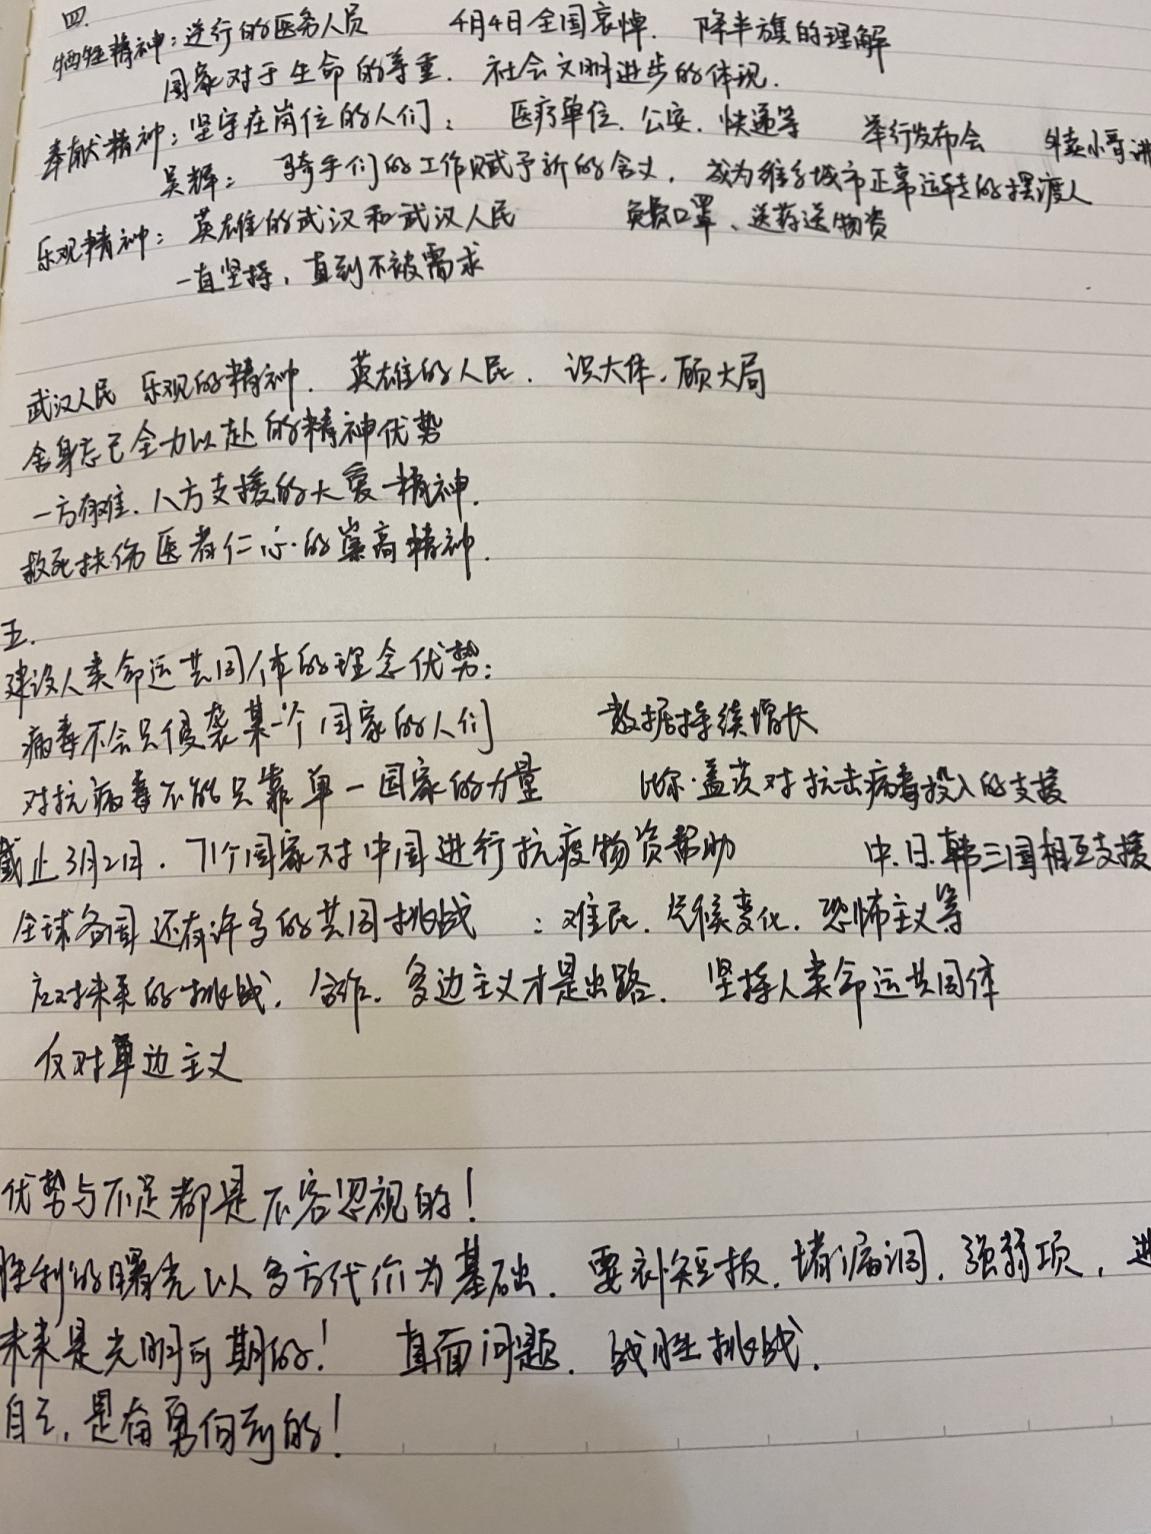 四.
牺牲精神：逆行的医务人员 4月4日全国哀悼. 降半旗的理解
国家对于生命的尊重. 社会文明进步的体现.
奉献精神：坚守在岗位的人们： 医疗单位. 公安. 快递等 举行发布会 外卖小哥讲
吴辉： 骑手们的工作赋予新的含义, 成为维系城市正常运转的摆渡人
乐观精神： 英雄的武汉和武汉人民 免费口罩、送药送物资
一直坚持, 直到不被需求
武汉人民 乐观的精神. 英雄的人民. 识大体, 顾大局
舍身忘己全力以赴的精神优势
一方有难. 八方支援的大爱精神.
救死扶伤医者仁心的崇高精神.
五.
建设人类命运共同体的理念优势:
病毒不会只侵袭某一个国家的人们 数据持续增长
对抗病毒不能只靠单一国家的力量 比尔·盖茨对抗击病毒投入的支援
截止3月2日. 71个国家对中国进行抗疫物资帮助 中.日.韩三国相互支援
全球各国还有许多的共同挑战 : 难民. 气候变化. 恐怖主义等
应对未来的挑战, 合作. 多边主义才是出路. 坚持人类命运共同体
反对单边主义
优势与不足都是不容忽视的!
胜利的曙光以多方代价为基础. 要补短板, 堵漏洞, 强弱项, 进
未来是光明可期的! 直面问题. 战胜挑战.
是奋勇向前的!